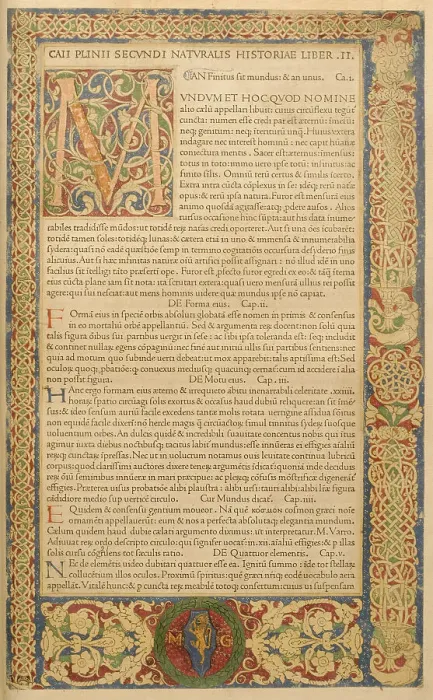 CAII PLINII SECVNDI NATVRALIS HISTORIAE LIBER .II.
AN Finitus sit mundus: & an unus. Ca.i.
M
VNDVM ET HOC QVOD NOMINE
alio cælũ appellari libuit: cuius circũflexu tegũt̃
cuncta: numen esse credi par est æternũ: imẽsũ:
neq; genitum: neq; iteriturũ unq̃. Huius extera
indagare nec interest hominũ: nec capit humãæ
coniectura mentis. Sacer est: æternus: imensus:
totus in toto: immo uero ipse totũ: infinitus: ac
finito silis. Omniũ rerũ certus & similis icerto.
Extra intra cũcta cõplexus in se: idẽq; rerũ naturæ
opus: & rerũ ipsa natura. Furor est mensurã eius
animo quosdã agitasse: atq; ,pdere ausos. Alios
rursus occasione hinc sũpta: aut his data innume
rabiles tradidisse mũdos: ut totidẽ rerũ naturas credi oporteret. Aut si una oẽs icubaret:
totidẽ tamen soles: totidẽq; lunas: & cætera etiã in uno & immensa & innumerabilia
sydera: quasi nõ eædẽ quæstiõe sẽmp̃ in termino cogitatiõis occursura desiderio finis
alicuius. Aut si hæc infinitas naturæ oĩũ artifici possit assignari: nõ illud idẽ in uno
facilius sit itelligi tãto præsertĩ ope. Furor est ,pfecto furor egredi ex eo: & tãq̃ iterna
eius cũcta plane iam sit nota: ita scrutari extera: quasi uero mensurã ullius rei possit
agere: qui sui nesciat: aut mens hominis uidere quæ mundus ipse nõ capiat.
DE Forma eius. Cap.ii.
FOrmã eius in speciẽ orbis absoluti globatã esse nomen in primis & consensus
in eo mortaliũ orbẽ appellantiũ. Sed & argumenta rerũ docent: non solũ quia
talis figura oĩbus sui partibus uergit in sese: ac sibi ipsa toleranda est: seq; includit
& continet nullaɽ egens cõpaginũ: nec finẽ aut initiũ ullis sui partibus sentiens: nec
quia ad motum quo subinde uerti debeat: ut mox apparebit: talis aptissima est: Sed
oculoɽ quoq; ,pbatiõe: q̃ conuexus mediusq; quacunq; cernat̃: cum id accidere ĩ alia
non possit figura. DE Motu eius. Cap. iii.
HAnc ergo formam eius æterno & irrequieto abitu inenarrabili celeritate .xxiiii.
horaɽ spatio circũagi solis exortus & occasus haud dubiũ reliquere. an sit imẽ
sus: & ideo sensum auriũ facile excedens tantæ molis rotatæ uertigine assidua sonitus
non equidẽ facile dixerĩ: nõ hercle magis q̃ circũactoɽ simul tinnitus syderũ suosque
uoluentium orbes. An dulcis quidẽ & incredibili suauitate concentus nobis qui itus
agimur iuxta diebus noctibusq; tacitus labit̃ mundus: esse innũeras ei effigies aĩaliũ
rerũq; cunctaɽ ĩpressas. Nec ut in uolucrum notamus ouis leuitate continua lubricũ
corpus: quod clarissimi auctores dixere terenoɽ argumẽtis idicat̃: quoniã inde deciduis
rerũ oĩũ seminibus innũeræ in mari præcipue: ac plerũq; cõfusis mõstrificæ digenerãt̃
effigies. Præterea uisus probatiõe alibi plaustri: alibi ursi: tauri alibi: alibi l̃ræ figura
cãdidiore medio sup uerticẽ circulo. Cur Mundus dicat̃. Cap.iiii.
EQuidem & consensu gentium moueor. Nã quẽ κόσμον cosmon græci nose
ornamẽti appellauerũt: eum & nos a perfecta absolutaq; elegantia mundum.
Cælum quidem haud dubie cælati argumento diximus: ut interpretatur .M. Varro.
Adiuuat rerũ ordo descripto circulo: qui signifer uocat̃: in .xii. aĩaliũ effigies: & p illas
solis cursus cõgruens tot sæculis ratio. DE Quattuor elementis. Cap.v.
NEc de elemẽtis uideo dubitari quattuor esse ea. Ignitũ summo: ide tot stellaɽ
collucẽtium illos oculos. Proximũ spiritus: quẽ græci nr̃iq; eodẽ uocabulo aera
appellãt. Vitalẽ hunc: & p cuncta rerũ meabilẽ totoq; consertum: cuius ui suspensam
M G